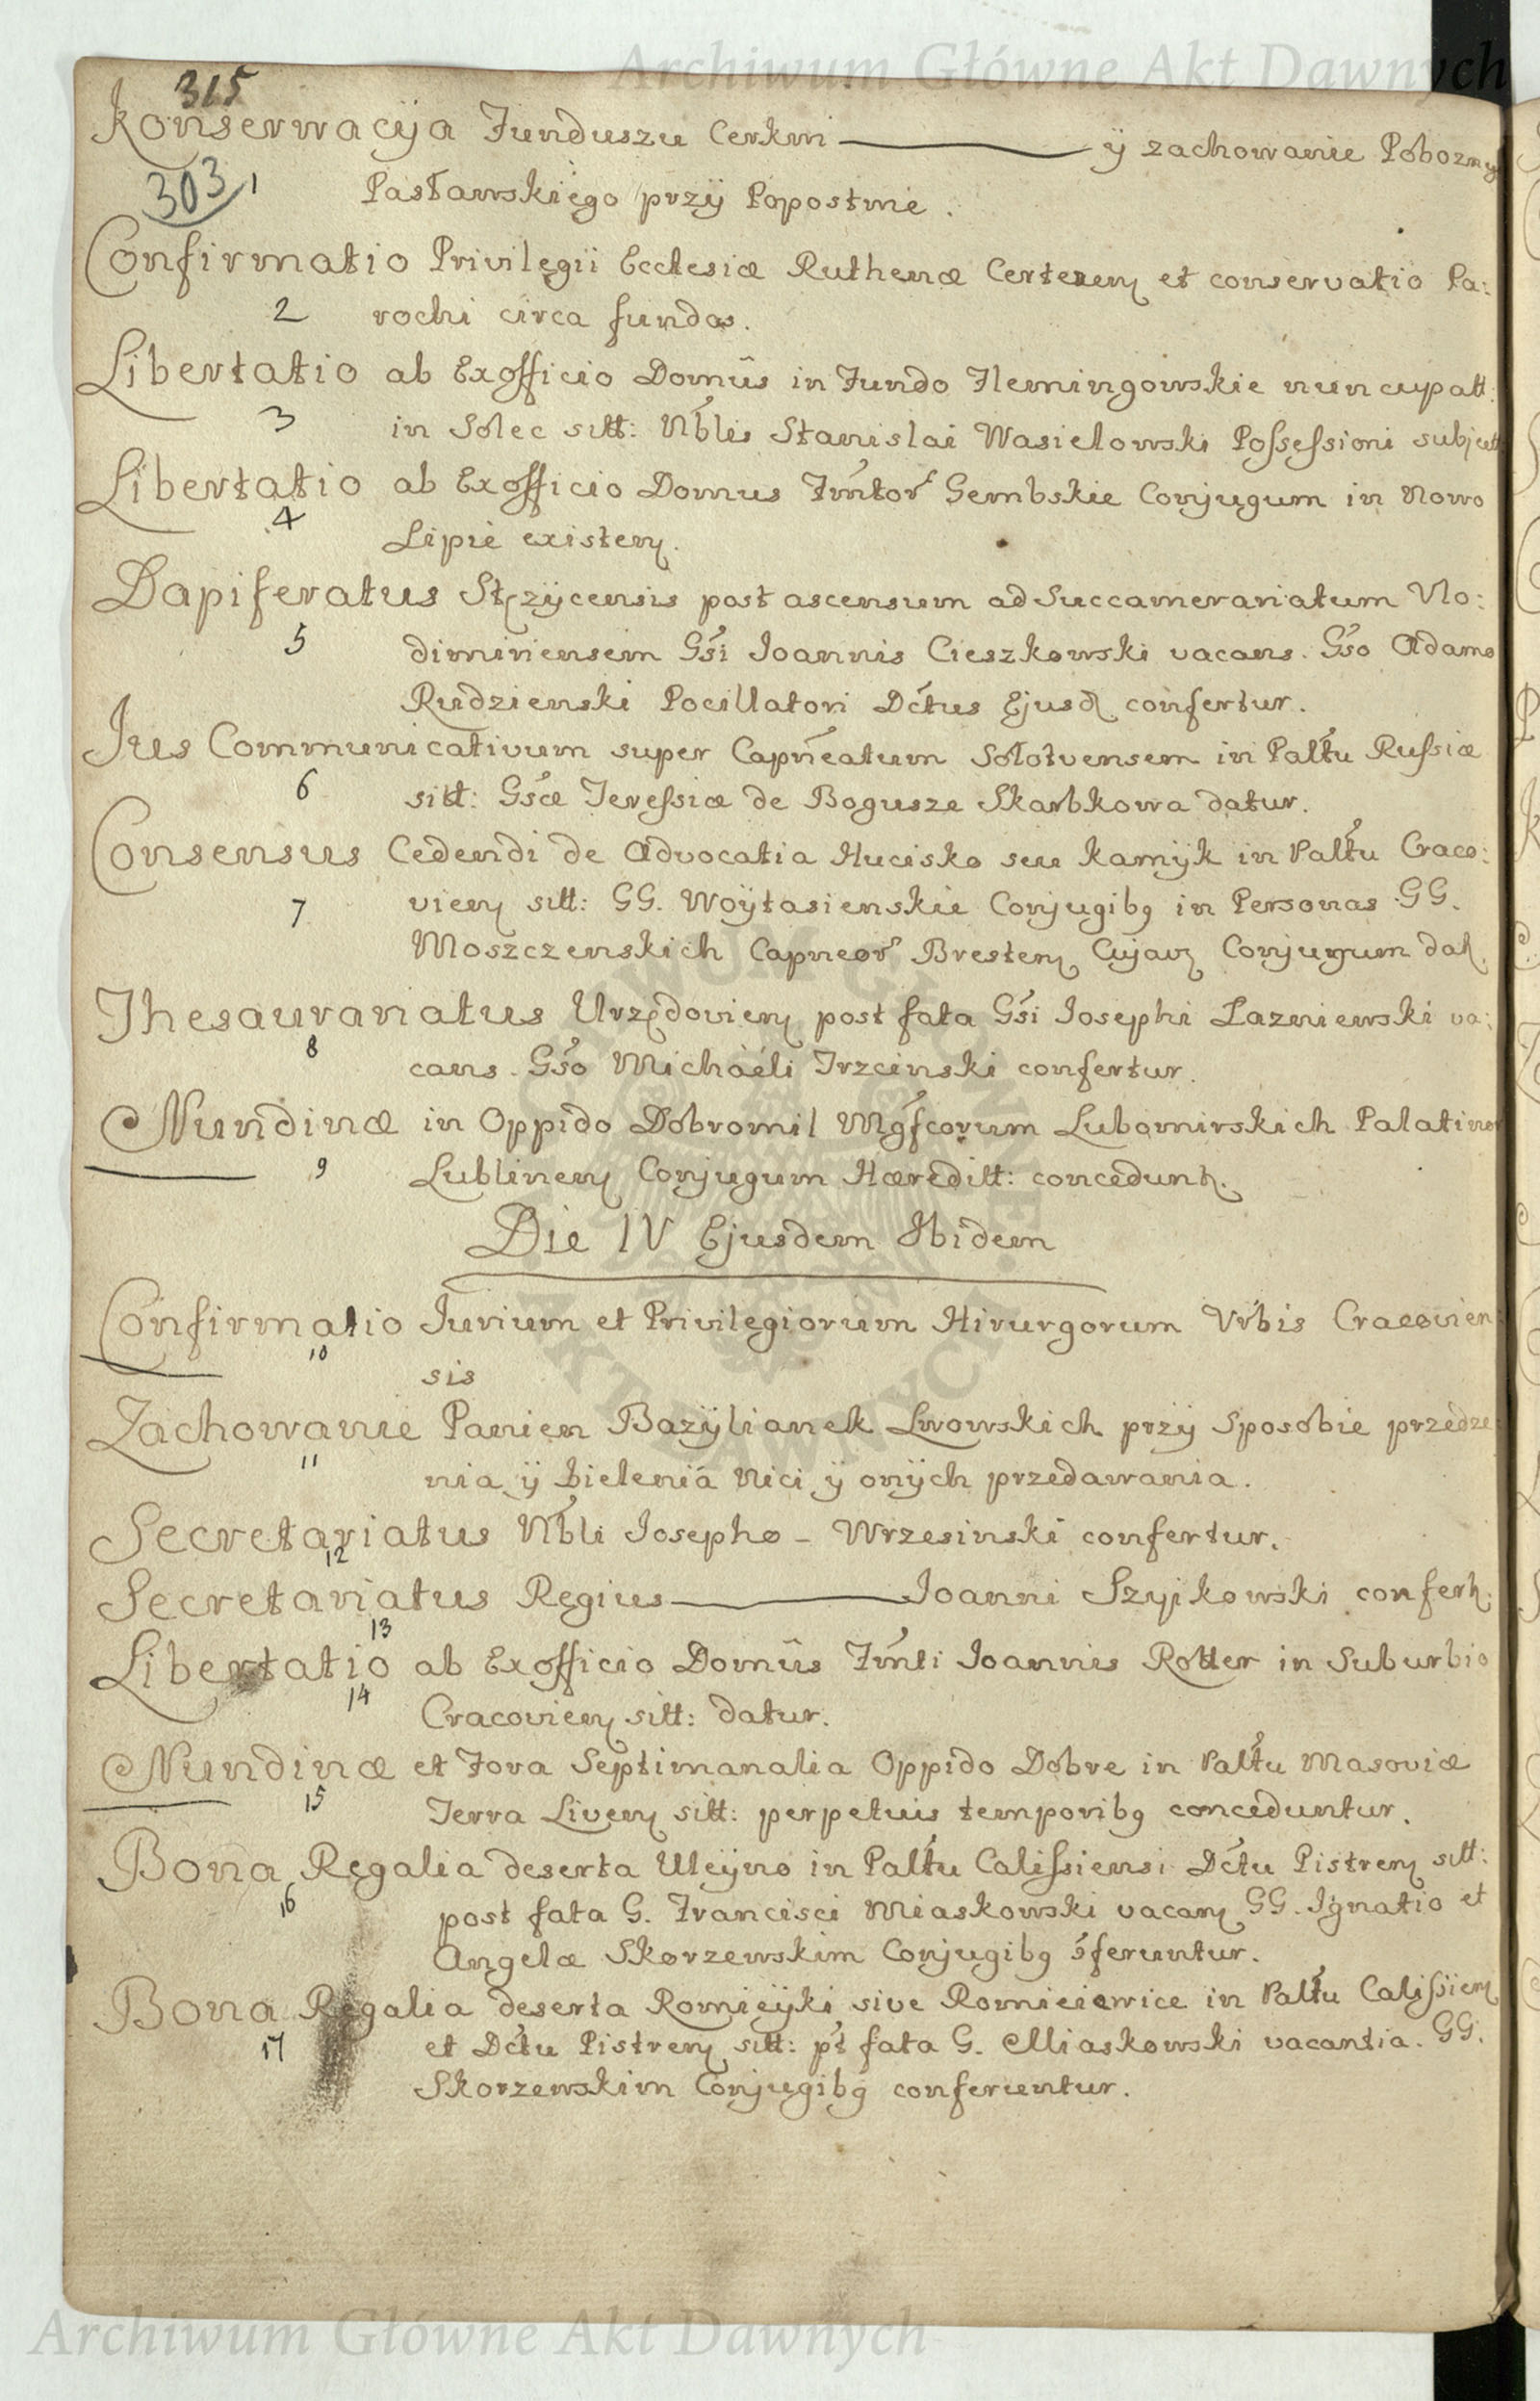 Archiwum Główne Akt Dawnych
315
Konserwacÿa Funduszu Cerkwi ——— ÿ zachowanie Pobozny
303 1 Pasławskiego przÿ Popostwie.
Confirmatio Privilegii Ecclesiæ Ruthenæ et conservatio Pa:
2 rochi circa fundos.
Libertatio ab Exofficio Domûs in Fundo Flemingowskie nuncupatt:
3 in Solec sitt: Nblis Stanislai Wasielowski Possessioni subject
Libertatio ab Exofficio Domus Fmtor Gembskie Conjugum in Nowo
4 Lipie existen.
Dapiferatus Stęzÿcensis post ascensum ad Succamerariatum Vlo:
5 dimiriensem Gsi Joannis Cieszkowski vacans. Gso Adamo
Rudzienski Pocillatori Dctus Ejusd confertur.
Jus Communicativum super Capneatum Solotvensem in Paltu Russiæ
6 sitt: Gsæ Teressiæ de Bogusze Skarbkowa datur.
Consensus Cedendi de Advocatia Hucisko seu Kamÿk in Paltu Craco:
7 vien sitt: GG. Woÿtasienskie Conjugibg in Personas GG.
Moszczenskich Capneor Bresten Cujav Conjugum dat.
Thesaurariatus Urzędovien post fata Gsi Josephi Lazniewski va:
8 cans. Gso Michaéli Trzcinski confertur.
Nundinæ in Oppido Dobromil Mgfcorum Lubomirskich Palatinor
9 Lublinen Conjugum Hæreditt: concedunt.
Die IV Ejusdem Ibidem
Confirmatio Jurium et Privilegiorum Hirurgorum Vrbis Cracovien:
10 sis
Zachowanie Panien Bazÿlianek Lwowskich przÿ Sposobie przedze
11 nia ÿ bielenia Nici ÿ onÿch przedawania.
Secretariatus Nbli Josepho - Wrzesinski confertur.
12
Secretariatus Regius ——— Joanni Szyjkowski confert.
13
Libertatio ab Exofficio Domûs Fmti Joannis Rotter in Suburbio
14 Cracovien sitt: datur.
Nundinæ et Fora Septimanalia Oppido Dobre in Paltu Masoviæ
15 Terra Liven sitt: perpetuis temporibg conceduntur.
Bona Regalia deserta Uleÿno in Paltu Calissiensi Dctu Pistren sitt:
16 post fata G. Francisci Miaskowski vacan GG. Ignatio et
Angelæ Skorzewskim Conjugibg óferuntur.
Bona Regalia deserta Romieÿki sive Romieiewice in Paltu Calissien
17 et Dctu Pistren sitt: pt fata G. Miaskowski vacantia. GG.
Skorzewskim Conjugibg conferuntur.
Archiwum Główne Akt Dawnych